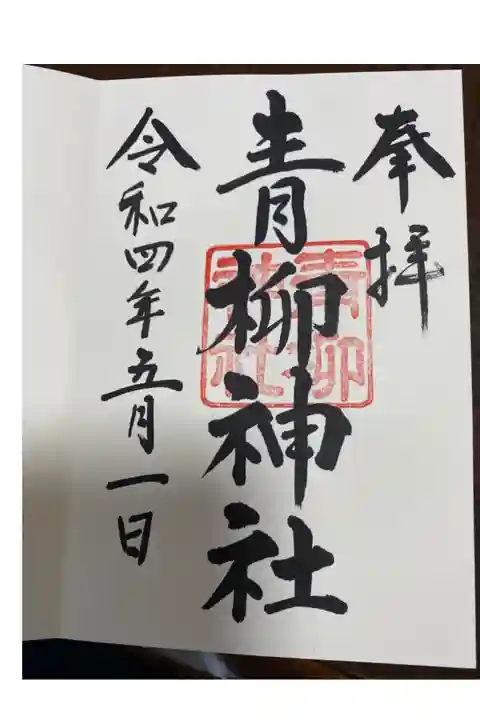 奉拝
青柳神社
青柳神社
令和四年五月一日